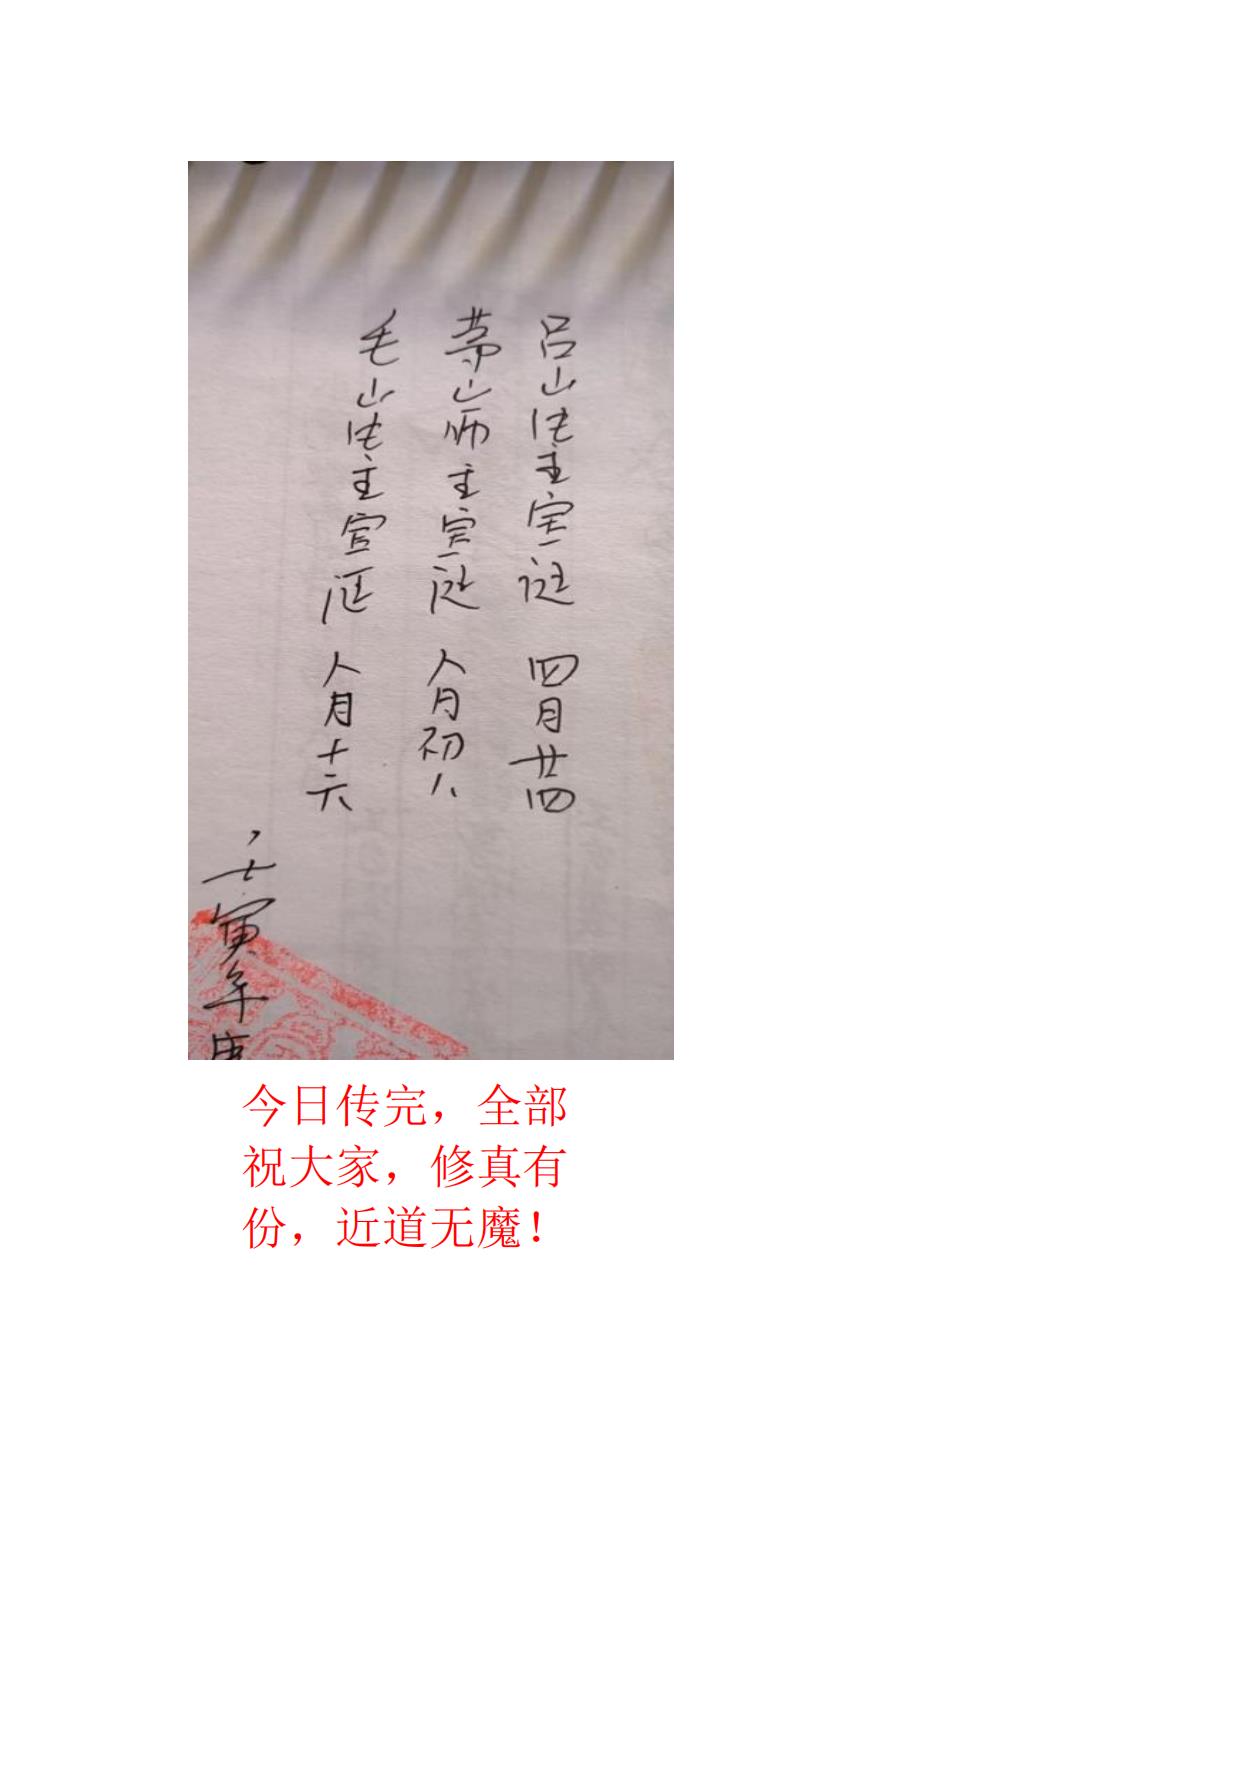 吕山法主宝诞 四月廿四
茅山师主宝诞 八月初八
毛山法主宝诞 八月十六
壬寅年
今日传完，全部
祝大家，修真有
份，近道无魔！